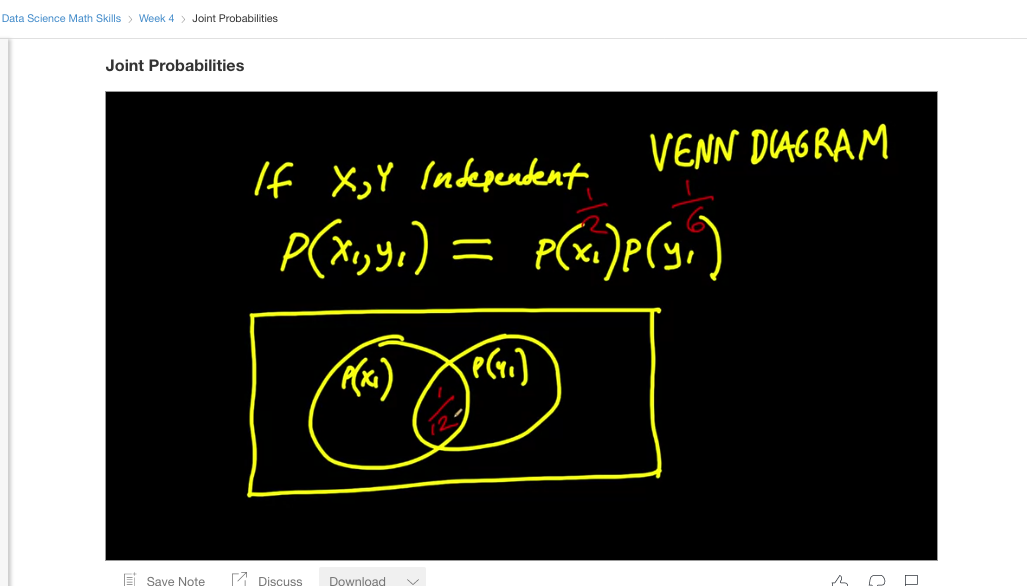 Data Science Math Skills > Week 4 > Joint Probabilities
Joint Probabilities
VENN DIAGRAM
If X,Y Independent
1/2 1/6
P(x₁,y₁) = P(x₁)P(y₁)
P(x₁) P(y₁)
1/12
Save Note Discuss Download